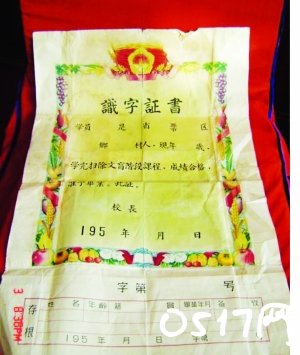 識字証書
学員 是 省 票 区
鄉 村人,現年 歲,
学完扫除文盲階段課程,成績合格,
准予畢業。此証。
校長
195 年 月 日
字第 号
存根
姓名 年齡 籍 畢業年月 簽收
195 年 月 日
0517网